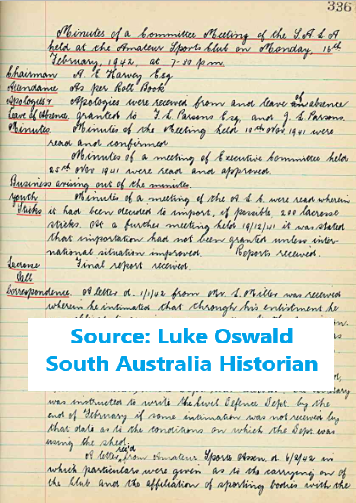 336
Minutes of a Committee Meeting of the S.A.L.A
held at the Amateur Sports Club on Monday,
February, 1942, at 7-30 p.m.
Chairman A. E. Harvey Esq
Attendance As per Roll Book
Apologies & Apologies were received from and leave of absence
Leave of Absence granted to Parsons Esq and J. L. Parsons.
Minutes Minutes of the Meeting held 10th Nov 1941 were
read and confirmed
Minutes of a meeting of Executive Committee held
25th Nov 1941 were read and approved.
Business arising out of the minutes.
Youth Minutes of a meeting of the A.L.C. were read wherein
Sticks it had been decided to import, if possible, 200 lacrosse
sticks. At a further meeting held 19/12/41 it was stated
that importation had not been granted unless inter-
national situation improved. Reports received.
Lacrosse Final report received.
Ball
Correspondence. A letter d. 1/1/42 from Mr. L. Miller was received
wherein he intimated that through his enlistment he
Source: Luke Oswald
South Australia Historian
was instructed to write the Civil Defence Dept. by the
end of February if some intimation was not received by
that date as to the conditions on which the Dept. was
using the shed.
A letter rec'd from Amateur Sports Assn. d 6/2/42 in
which particulars were given as to the carrying on of
the Club and the affiliation of sporting bodies with the